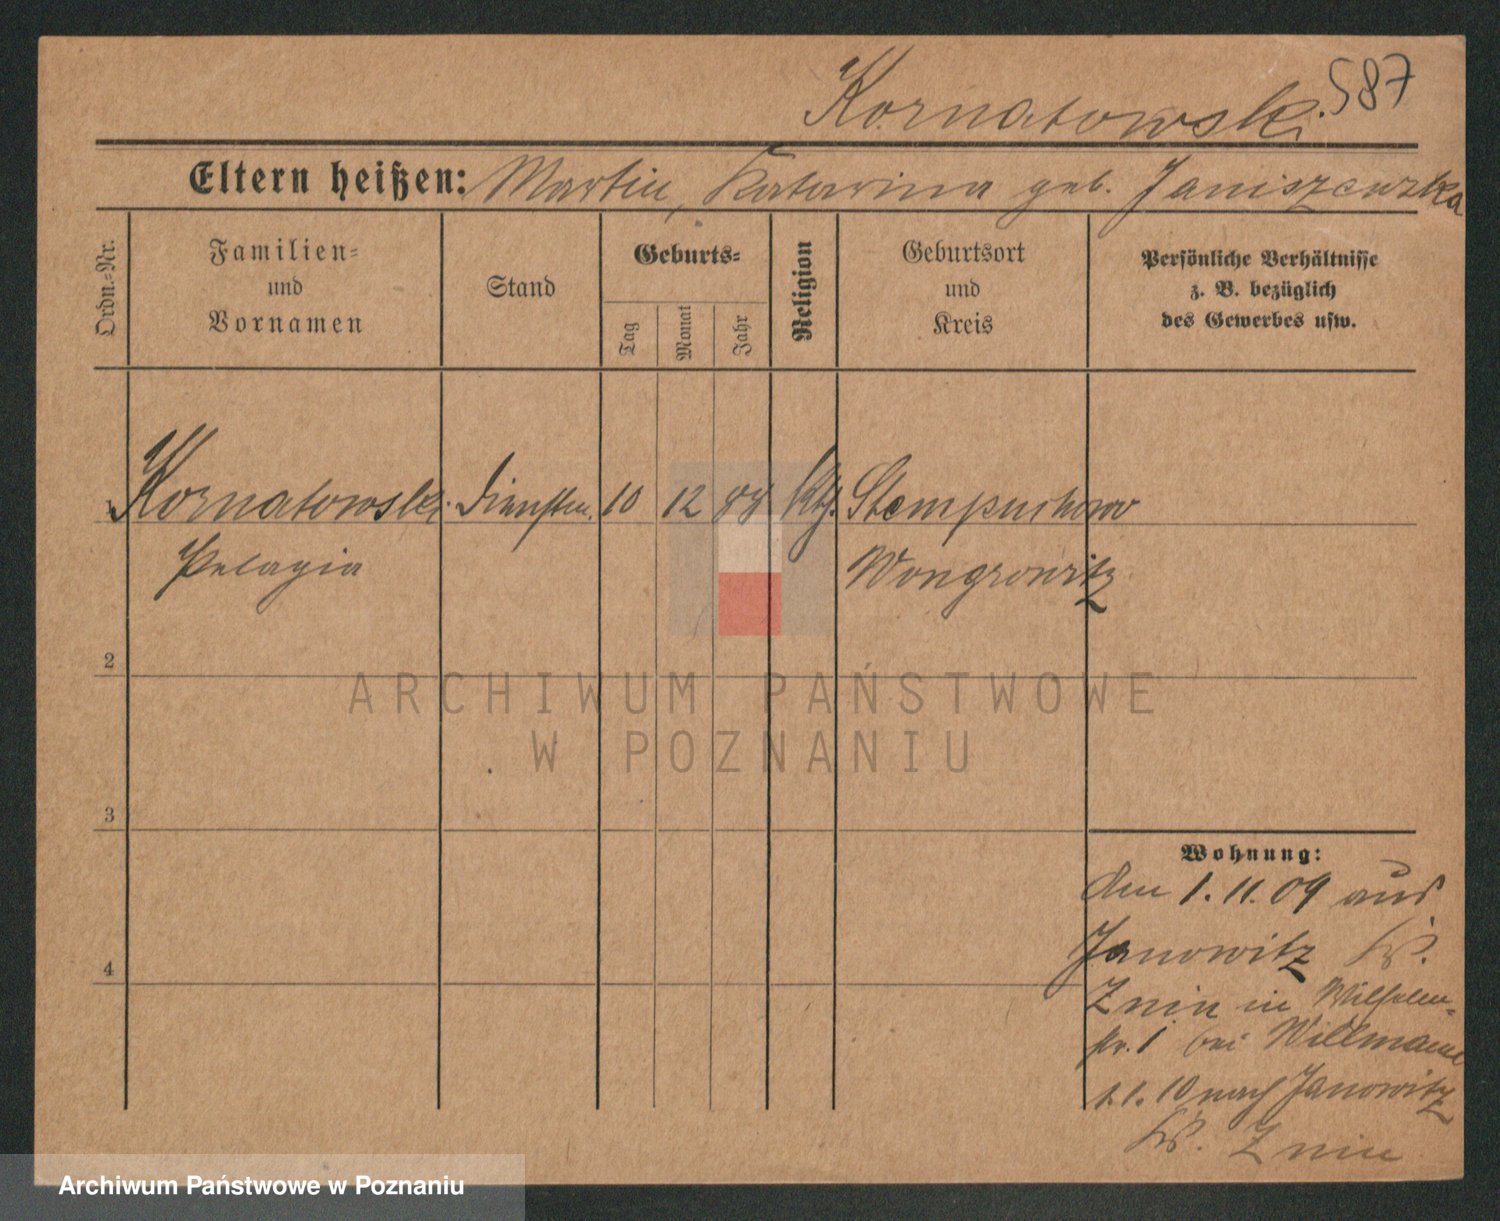 587
Kornatowski.
Eltern heißen: Martin, Katarina geb. Janiszewska
Ordn.-Nr.
Familien-
und
Vornamen
Stand
Geburts-
Tag
Monat
Jahr
Religion
Geburtsort
und
Kreis
Persönliche Verhältnisse
z. B. bezüglich
des Gewerbes usw.
1 Kornatowski. 10 12 kth. Stempuchowo
Pelagia Wongrowitz
2
3
4
Wohnung:
den 1.11.09 aus
Janowitz Kr.
Znin in Wilhelm-
str. 1 bei Willmann
1.1.10 nach Janowitz
Kr. Znin
ARCHIWUM PAŃSTWOWE
W POZNANIU
Archiwum Państwowe w Poznaniu